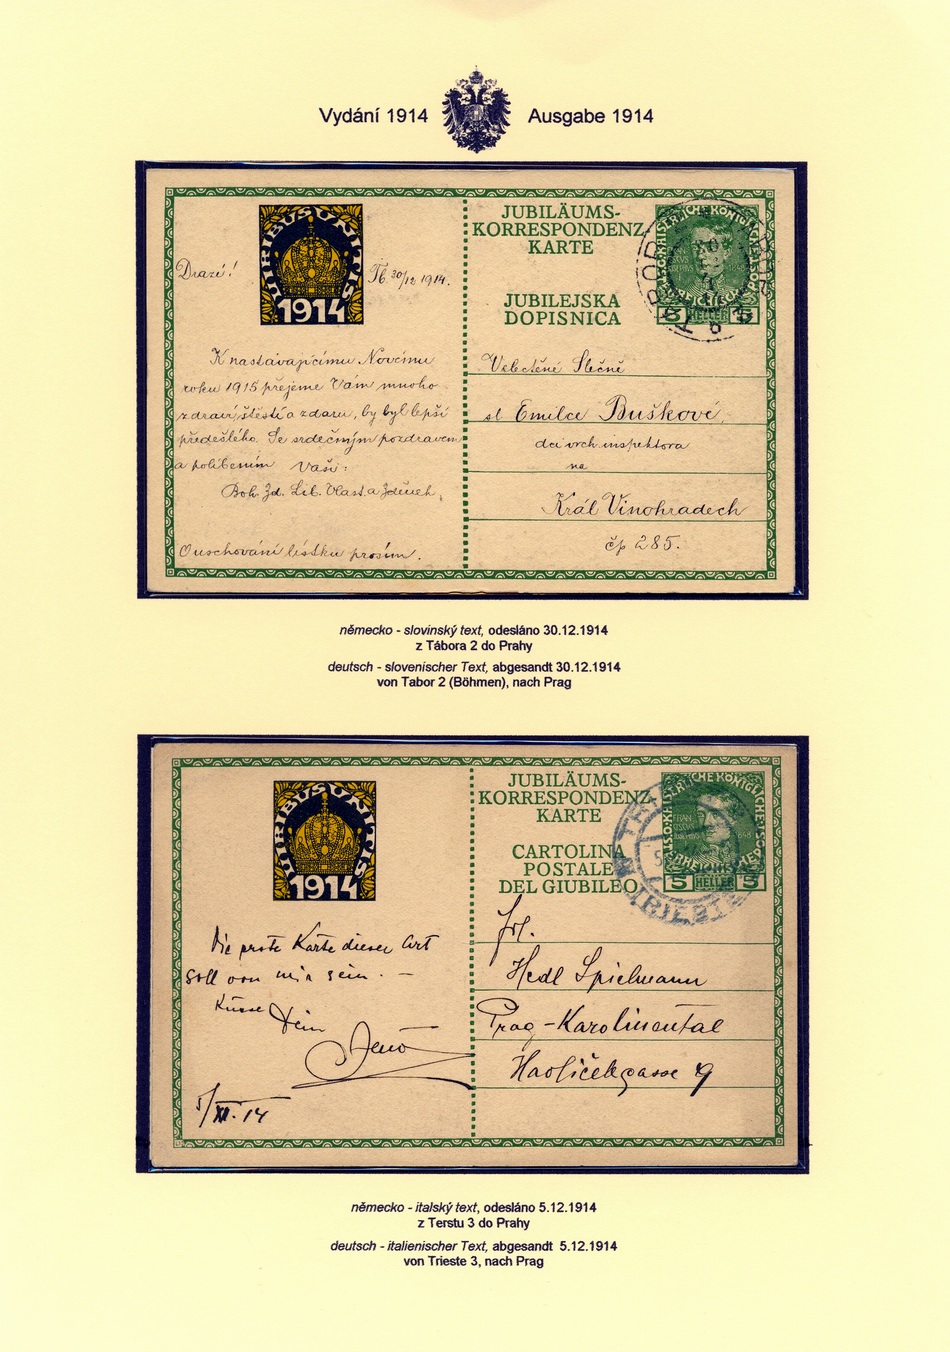 Vydání 1914
Ausgabe 1914
VIRIBUS UNITIS
1914
Drazé!
Tb. 30/12 1914.
K nastávajícímu Novému
roku 1915 přejeme Vám mnoho
zdraví štěstí a zdaru, by byl lepší
předešlého. Se srdečným pozdravem
a políbením Vaši:
Boh. Zd. Lib. Vlast. a Zdeněk.
O uschování lístku prosím.
JUBILÄUMS-
KORRESPONDENZ
KARTE
JUBILEJSKA
DOPISNICA
5 HELLER 5
Velectěné Slečně
sl Emilce Buškové,
dci vrch. inspektora
na
Král Vinohradech
čp 285.
německo - slovinský text, odesláno 30.12.1914
z Tábora 2 do Prahy
deutsch - slovenischer Text, abgesandt 30.12.1914
von Tabor 2 (Böhmen), nach Prag
VIRIBUS UNITIS
1914
Die erste Karte dieser Art
soll von mir sein. —
Küsse Dein
5/XII. 14
JUBILÄUMS-
KORRESPONDENZ
KARTE
CARTOLINA
POSTALE
DEL GIUBILEO
5 HELLER 5
Frl.
Hedl Spielmann
Prag-Karolinental
Havlíčekgasse 9
německo - italský text, odesláno 5.12.1914
z Terstu 3 do Prahy
deutsch - italienischer Text, abgesandt 5.12.1914
von Trieste 3, nach Prag